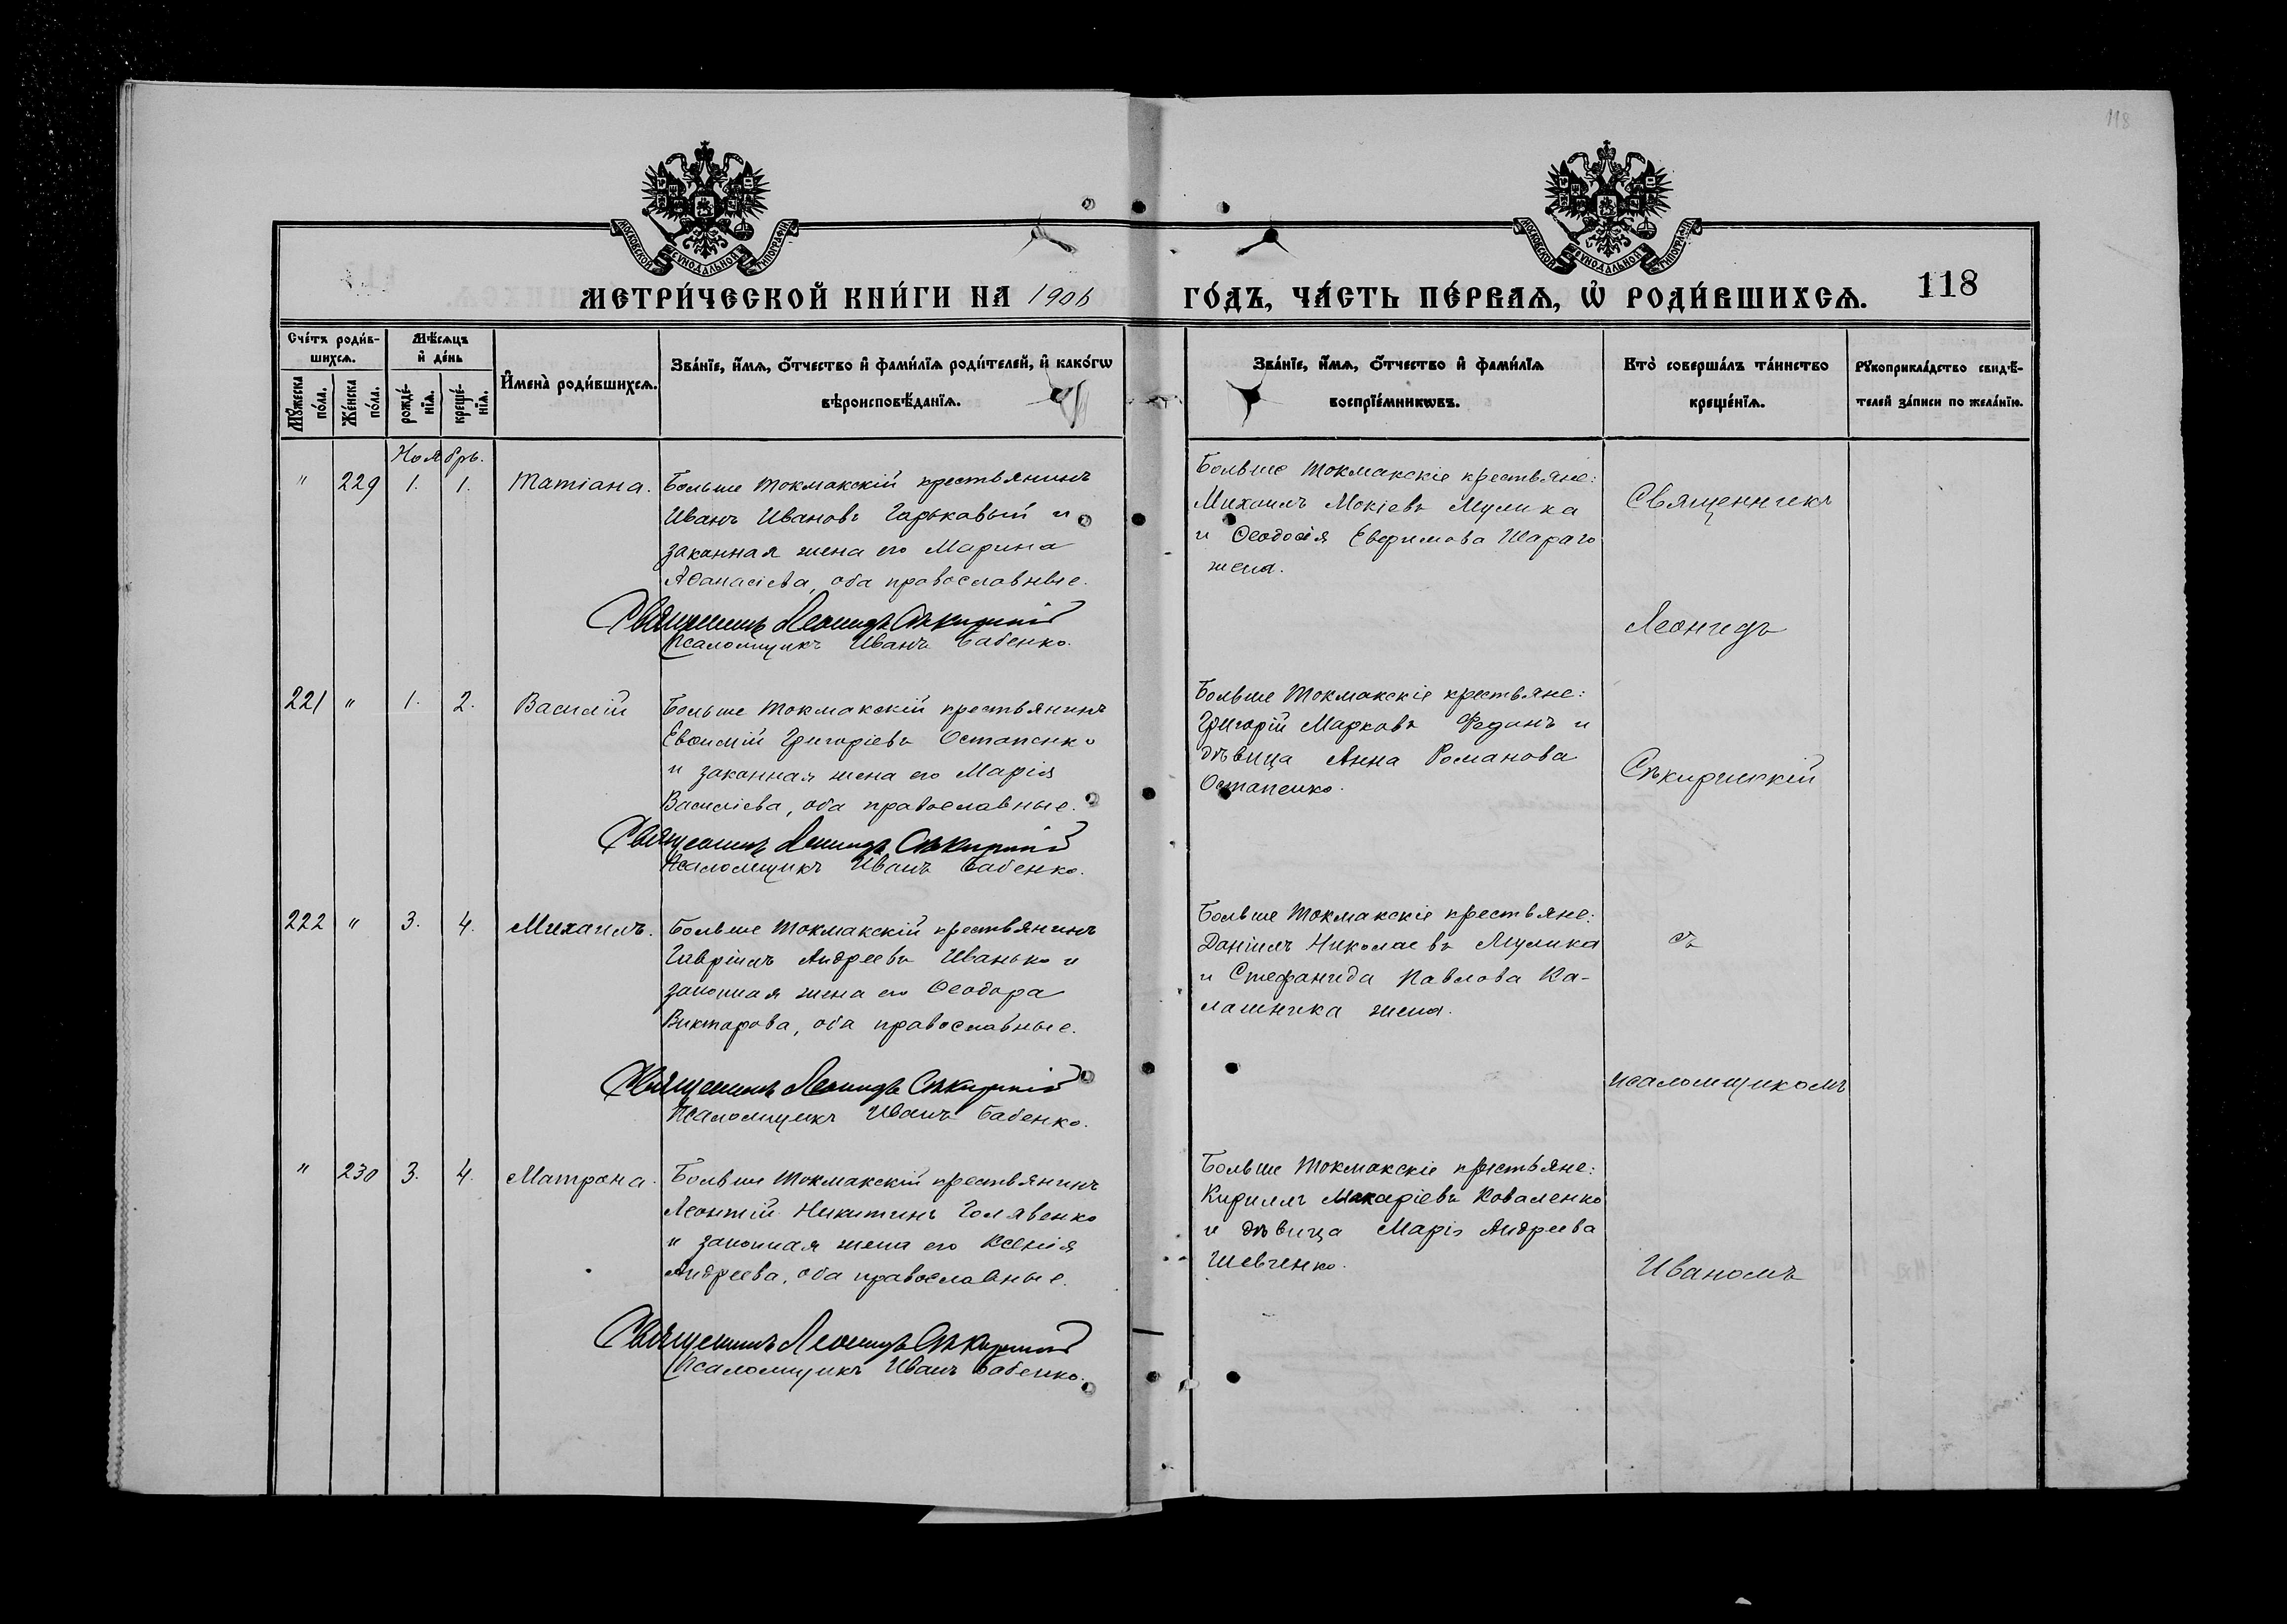 118
МОСКОВСКОЙ СѴНОДАЛЬНОЙ ТИПОГРАФІИ
МОСКОВСКОЙ СѴНОДАЛЬНОЙ ТИПОГРАФІИ
МЕТРИ́ЧЕСКОЙ КНИ́ГИ НА 1906
ГО́ДЪ, ЧА́СТЬ ПЕ́РВАѦ, Ѡ҆ РОДИ́ВШИХСѦ. 118
Сче́тъ роди́в-
шихсѧ.
Мꙋ́жеска по́ла.
Же́нска по́ла.
Мѣ́сѧцъ
и҆ де́нь
рожде́-
нїѧ.
креще́-
нїѧ.
И҆мена̀ роди́вшихсѧ.
Зва́нїе, и҆́мѧ, ѻ҆́тчество и҆ фами́лїѧ роди́телей, и҆ како́гѡ
вѣроисповѣ́данїѧ.
Зва́нїе, и҆́мѧ, ѻ҆́тчество и҆ фами́лїѧ
воспрїе́мникѡвъ.
Кто̀ соверша́лъ та́инство
креще́нїѧ.
Рꙋкоприкла́дство свидѣ́-
телей за́писи по жела́нїю.
Ноябрь.
" 229 1. 1. Татіана. Больше Токмакскій крестьянинъ
Иванъ Ивановъ Гарьковый и
законная жена его Марина
Аѳанасіева, оба православные.
Священникъ Леонидъ Сѣкирскій
Псаломщикъ Иванъ Бабенко.
Больше Токмакскіе крестьяне:
Михаилъ Мокіевъ Мулика
и Ѳеодосія Евфимова Шараго
жена.
Священникъ
Леонидъ
221 " 1. 2. Василій Больше Токмакскій крестьянинъ
Евѳимій Григоріевъ Остапенко
и законная жена его Марія
Василіева, оба православные.
Священникъ Леонидъ Сѣкирскій
Псаломщикъ Иванъ Бабенко.
Больше Токмакскіе крестьяне:
Григорій Марковъ Феданъ и
дѣвица Анна Романова
Остапенко.
Сѣкирскій
222 " 3. 4. Михаилъ. Больше Токмакскій крестьянинъ
Гавріилъ Андреевъ Иванько и
законная жена его Ѳеодора
Викторова, оба православные.
Священникъ Леонидъ Сѣкирскій
Псаломщикъ Иванъ Бабенко.
Больше Токмакскіе крестьяне:
Даніилъ Николаевъ Мулика
и Стефанида Павлова Ка-
лашника жена.
съ
псаломщикомъ
" 230 3. 4. Матрона. Больше Токмакскій крестьянинъ
Леонтій Никитинъ Голявенко
и законная жена его Ксенія
Андреева, оба православные.
Священникъ Леонидъ Сѣкирскій
Псаломщикъ Иванъ Бабенко.
Больше Токмакскіе крестьяне:
Кириллъ Макаріевъ Коваленко
и дѣвица Марія Андреева
Шевченко.
Иваномъ